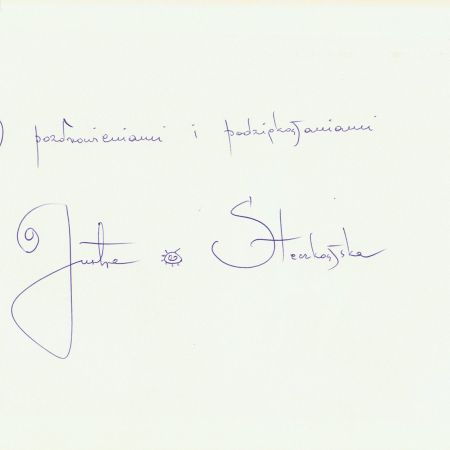 pozdrowieniami i podziękowaniami
Justyna Steczkowska